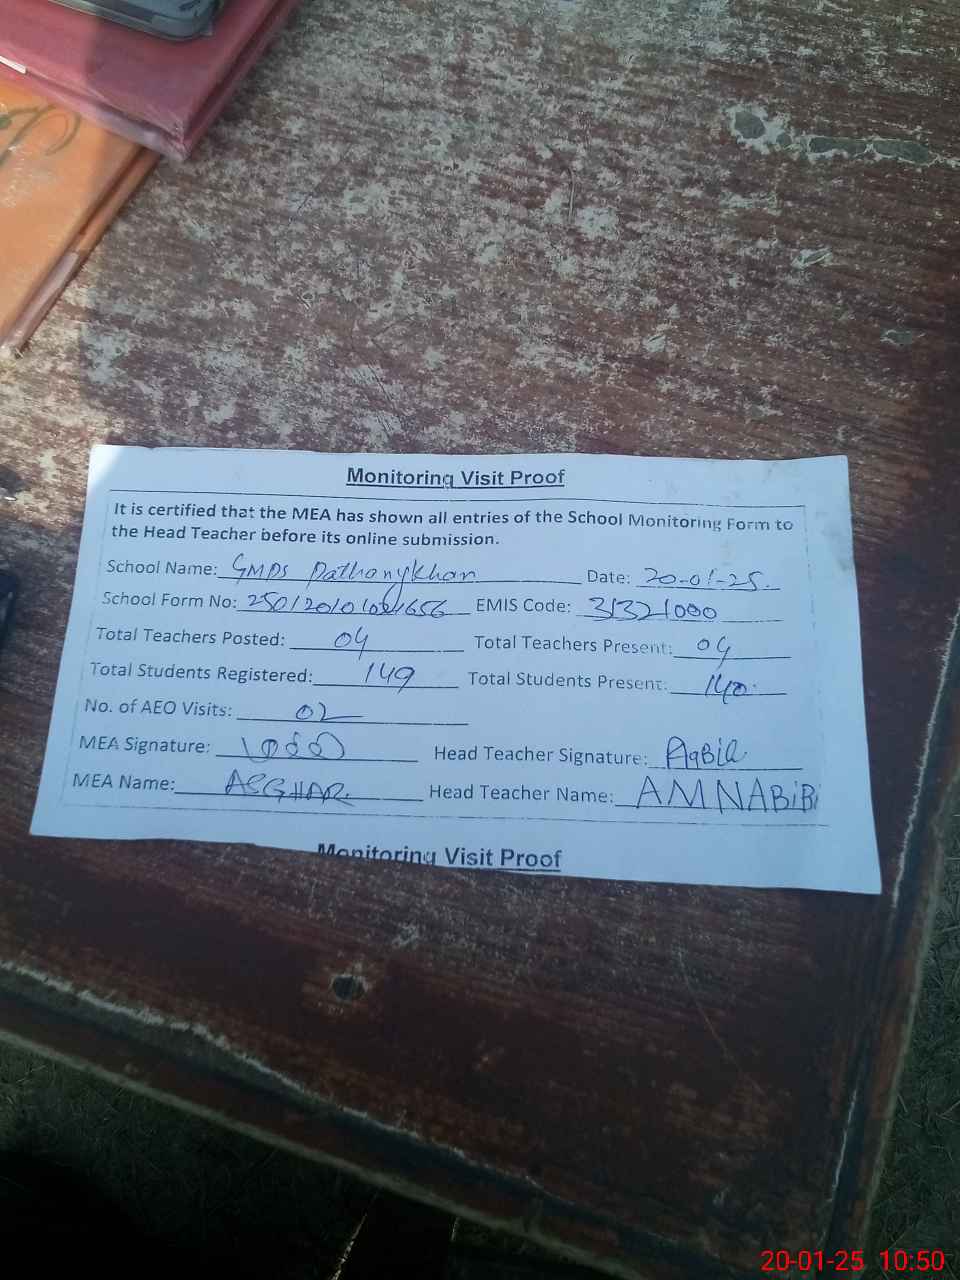 Monitoring Visit Proof
It is certified that the MEA has shown all entries of the School Monitoring Form to
the Head Teacher before its online submission.
School Name: GMPS Pathanykhan Date: 20-01-25.
School Form No: EMIS Code: 31321000
Total Teachers Posted: 04 Total Teachers Present: 04
Total Students Registered: 149 Total Students Present: 140
No. of AEO Visits: 02
MEA Signature: Head Teacher Signature:
MEA Name: ASGHAR Head Teacher Name: AMNABiBi
Monitoring Visit Proof
20-01-25 10:50